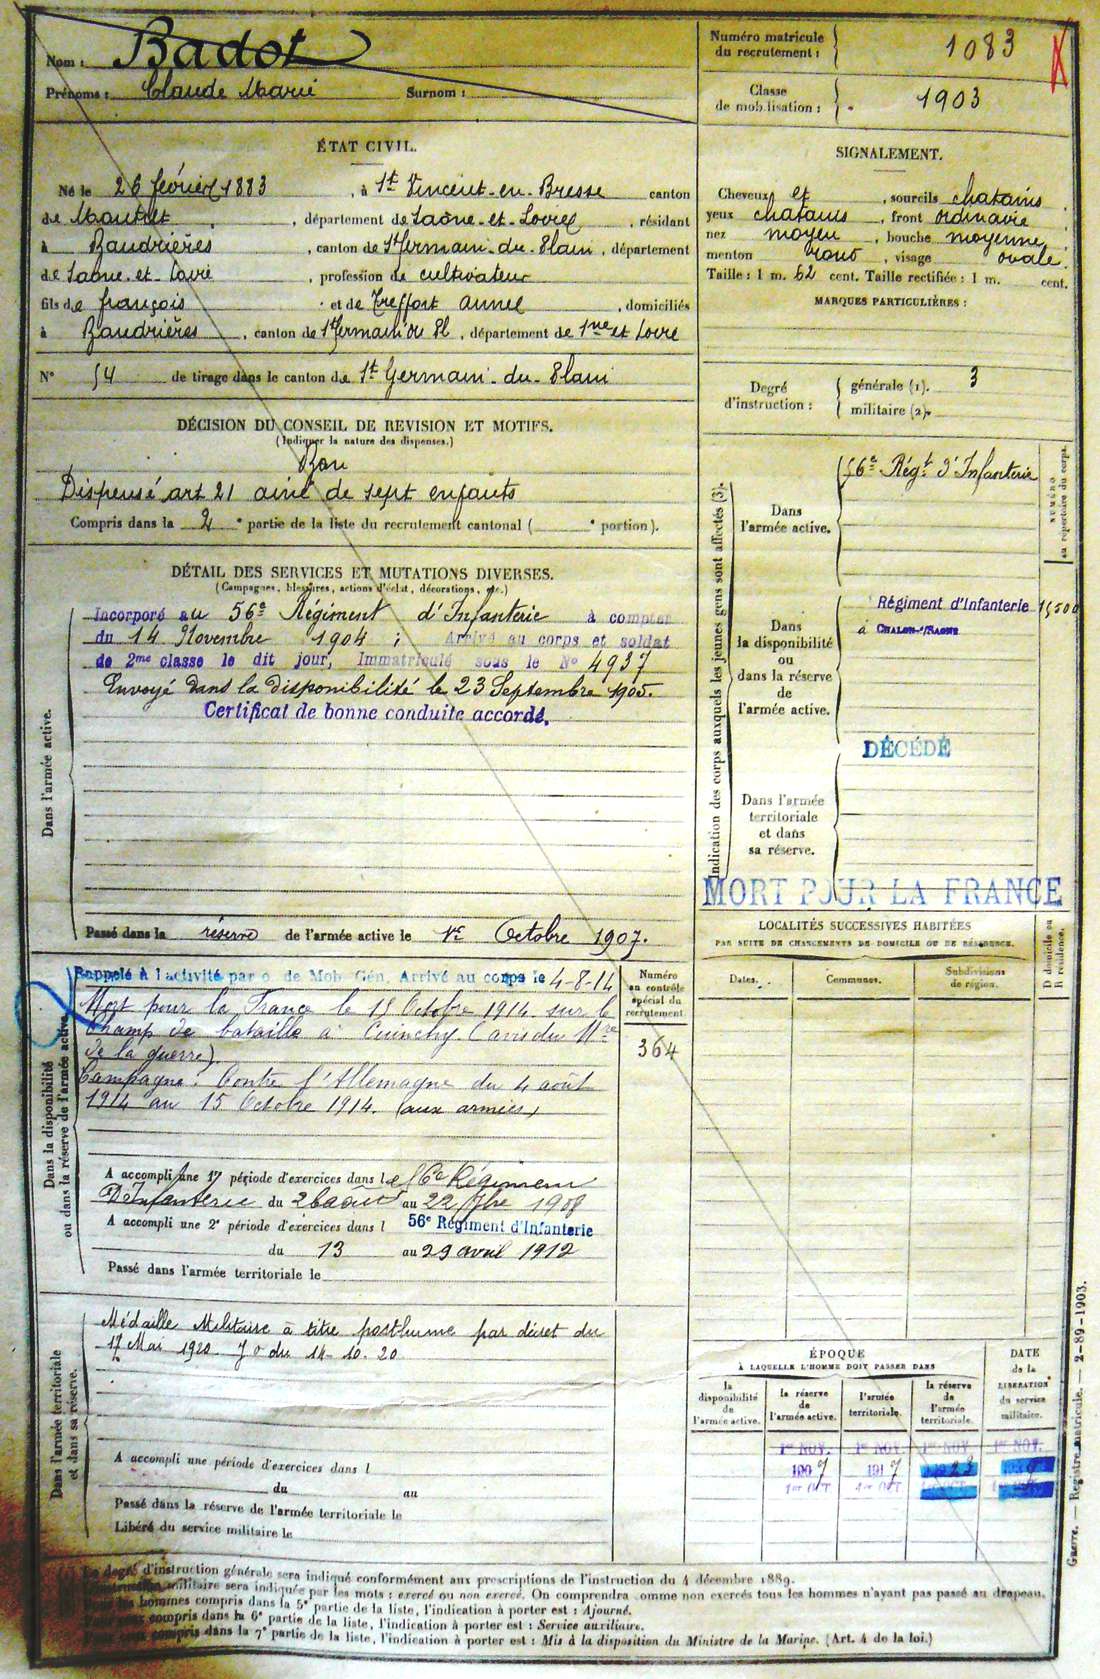 Nom : Badot
Prénoms : Claude Marie Surnom :
Numéro matricule du recrutement : 1083
Classe de mobilisation : 1903
ÉTAT CIVIL.
Né le 26 février 1883, à St Vincent-en-Bresse canton
de Montret, département de Saône-et-Loire, résidant
à Baudrières, canton de St Germain-du-Plain, département
de Saône-et-Loire, profession de cultivateur
fils de françois et de Treffort annee, domiciliés
à Baudrières, canton de St Germain du Pl, département de Sne et Loire
N° 54 de tirage dans le canton de St Germain-du-Plain
SIGNALEMENT.
Cheveux et, sourcils chatains,
yeux chatains, front ordinaire
nez moyen, bouche moyenne,
menton rond, visage ovale.
Taille : 1 m. 62 cent. Taille rectifiée : 1 m. cent.
MARQUES PARTICULIÈRES :
Degré d'instruction : générale (1). 3
militaire (2).
DÉCISION DU CONSEIL DE REVISION ET MOTIFS.
(Indiquer la nature des dispenses.)
Bon
Dispensé art 21 ainé de sept enfants
Compris dans la 2e partie de la liste du recrutement cantonal ( e portion).
DÉTAIL DES SERVICES ET MUTATIONS DIVERSES.
(Campagnes, blessures, actions d'éclat, décorations, etc.)
Dans l'armée active.
Incorporé au 56e Régiment d'Infanterie à compter
du 14 Novembre 1904 ; Arrivé au corps et soldat
de 2me classe le dit jour, Immatriculé sous le N° 4937
Envoyé dans la disponibilité le 23 Septembre 1905.
Certificat de bonne conduite accordé.
Passé dans la réserve de l'armée active le 1er Octobre 1907.
Indication des corps auxquels les jeunes gens sont affectés (3).
NUMÉRO au répertoire du corps.
Dans l'armée active.
56e Régt d'Infanterie
Dans la disponibilité ou dans la réserve de l'armée active.
Régiment d'Infanterie 15500
à CHALON-s/-SAONE
DÉCÉDÉ
Dans l'armée territoriale et dans sa réserve.
MORT POUR LA FRANCE
LOCALITÉS SUCCESSIVES HABITÉES
PAR SUITE DE CHANGEMENTS DE DOMICILE OU DE RÉSIDENCE.
D domicile ou R résidence.
Dates. Communes. Subdivisions de région.
Dans la disponibilité ou dans la réserve de l'armée active.
Rappelé à l'activité par o. de Mob. Gén. Arrivé au corps le 4-8-14
Mort pour la France le 15 Octobre 1914 sur le
Champ de bataille à Cuinchy. (avis du Mre
de la guerre).
Campagne : Contre l'Allemagne du 4 août
1914 au 15 Octobre 1914. (aux armées)
Numéro au contrôle spécial du recrutement
364
A accompli une 1re période d'exercices dans le 56e Régiment
D'Infanterie du 26 août au 22 7bre 1908
A accompli une 2e période d'exercices dans l 56e Régiment d'Infanterie
du 13 au 29 avril 1912
Passé dans l'armée territoriale le
Dans l'armée territoriale et dans sa réserve.
Médaille Militaire à titre posthume par décret du
17 Mai 1920 J O du 14-10-20
A accompli une période d'exercices dans l
du au
Passé dans la réserve de l'armée territoriale le
Libéré du service militaire le
ÉPOQUE
À LAQUELLE L'HOMME DOIT PASSER DANS
DATE de la LIBÉRATION du service militaire.
la disponibilité de l'armée active. la réserve de l'armée active. l'armée territoriale. la réserve de l'armée territoriale.
1er NOV. 1er NOV. 1er NOV. 1er NOV.
1907 1917 1923
1er OCT 1er OCT
Guerre. — Registre matricule. — 2-89-1903.
(1) Le degré d'instruction générale sera indiqué conformément aux prescriptions de l'instruction du 4 décembre 1889.
militaire sera indiquée par les mots : exercé ou non exercé. On comprendra comme non exercés tous les hommes n'ayant pas passé au drapeau.
hommes compris dans la 5e partie de la liste, l'indication à porter est : Ajourné.
compris dans la 6e partie de la liste, l'indication à porter est : Service auxiliaire.
compris dans la 7e partie de la liste, l'indication à porter est : Mis à la disposition du Ministre de la Marine. (Art. 4 de la loi.)